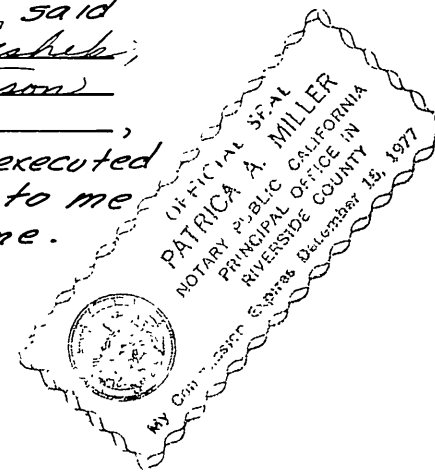 said
executed
to me
me.
OFFICIAL SEAL
PATRICA A. MILLER
NOTARY PUBLIC CALIFORNIA
PRINCIPAL OFFICE IN
RIVERSIDE COUNTY
My Commission Expires December 18, 1977